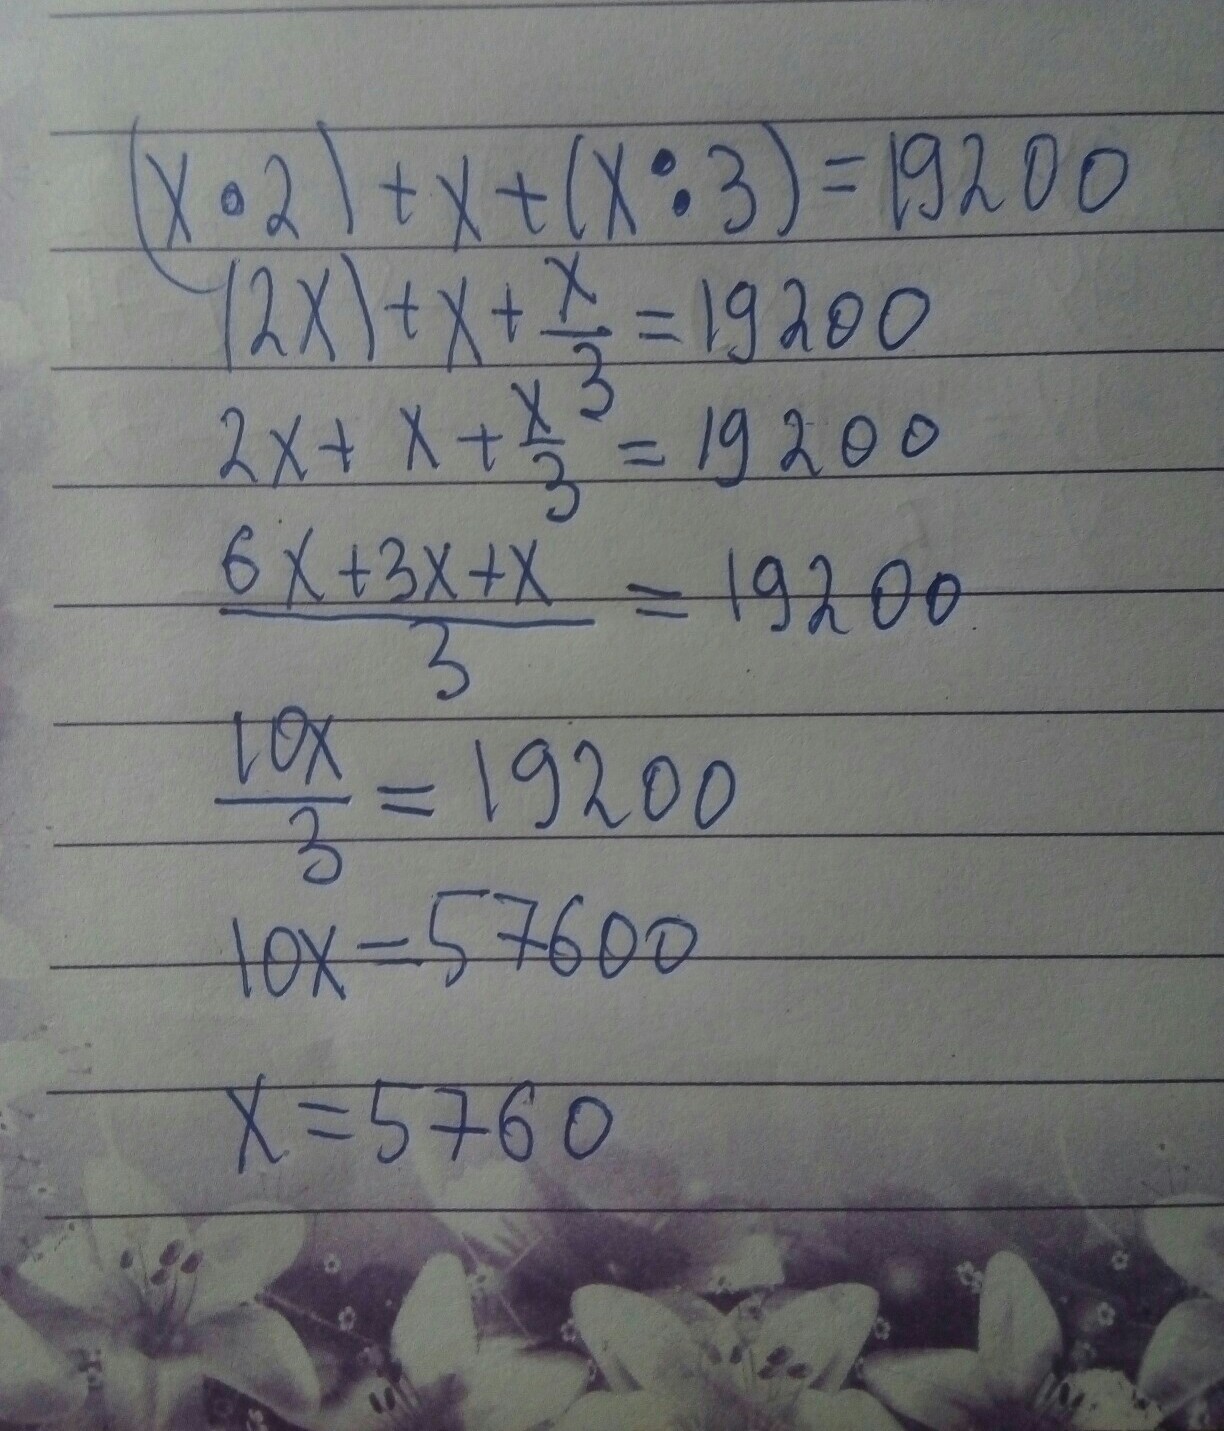 (x • 2) + x + (x : 3) = 19200
(2x) + x + x/3 = 19200
2x + x + x/3 = 19200
6x + 3x + x / 3 = 19200
10x/3 = 19200
10x = 57600
x = 5760